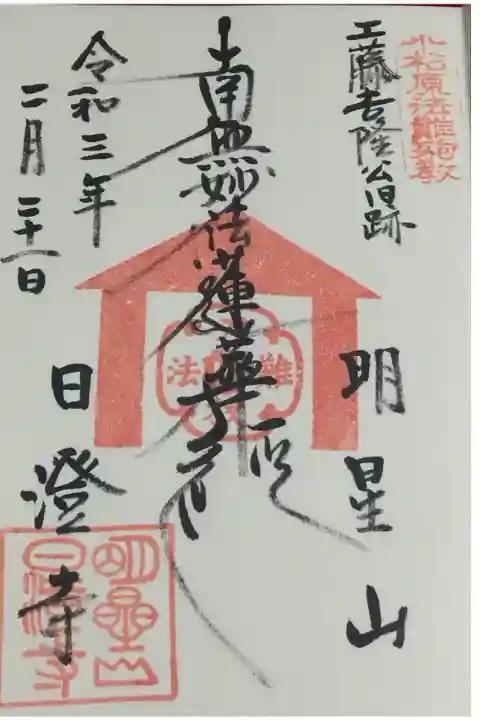 小松原法難殉教
工藤吉隆公旧跡
明星山
南無妙法蓮華経
令和三年
二月二十一日
日澄寺
法難
明星山
日澄寺